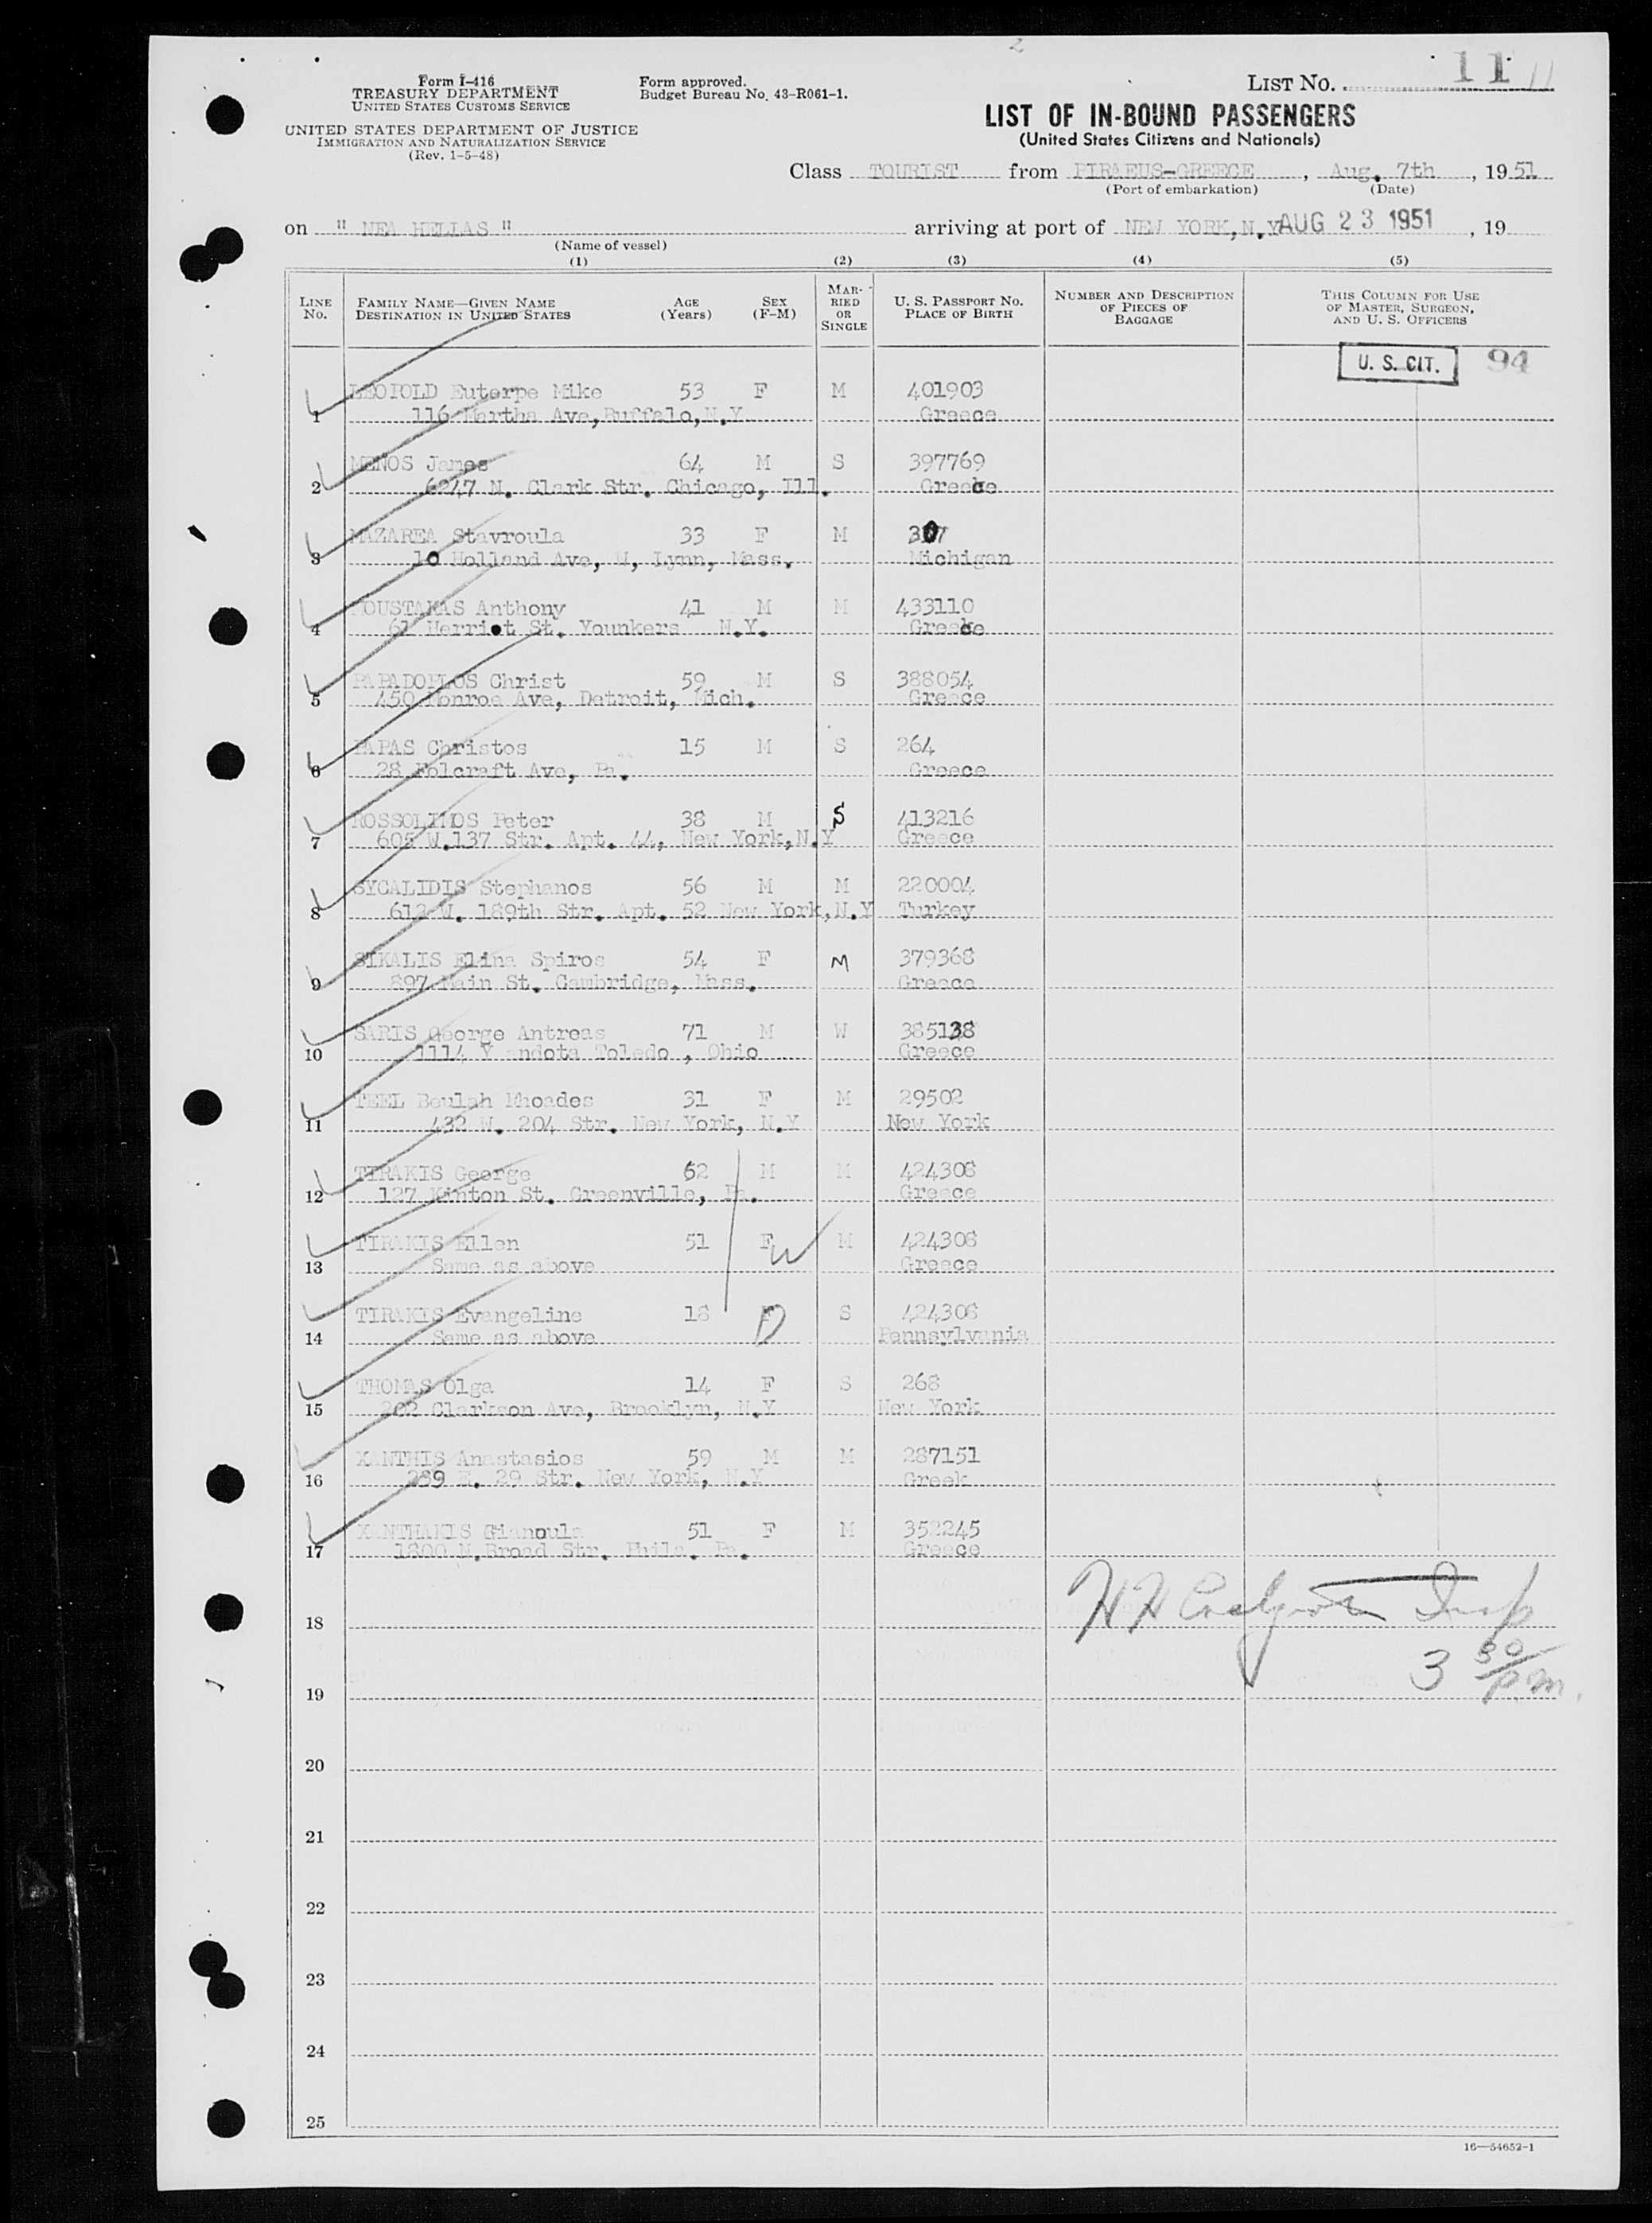 2
Form I-416
TREASURY DEPARTMENT
UNITED STATES CUSTOMS SERVICE
UNITED STATES DEPARTMENT OF JUSTICE
IMMIGRATION AND NATURALIZATION SERVICE
(Rev. 1-5-48)
Form approved.
Budget Bureau No. 43-R061-1.
LIST NO. 11 11
LIST OF IN-BOUND PASSENGERS
(United States Citizens and Nationals)
Class TOURIST from PIRAEUS-GREECE, Aug. 7th, 1951
(Port of embarkation) (Date)
on " NEA HELLAS " arriving at port of NEW YORK, N.Y. AUG 23 1951, 19
(Name of vessel)
(1) (2) (3) (4) (5)
LINE NO. FAMILY NAME—GIVEN NAME DESTINATION IN UNITED STATES AGE (Years) SEX (F-M) MARRIED OR SINGLE U. S. PASSPORT NO. PLACE OF BIRTH NUMBER AND DESCRIPTION OF PIECES OF BAGGAGE THIS COLUMN FOR USE OF MASTER, SURGEON, AND U. S. OFFICERS
U. S. CIT. 94
LEOPOLD Euterpe Mike 53 F M 401903
1 116 Martha Ave, Buffalo, N.Y Greece
MENOS James 64 M S 397769
2 6247 N. Clark Str. Chicago, Ill. Greece
MAZAREA Stavroula 33 F M 307
3 10 Holland Ave, W, Lynn, Mass. Michigan
MOUSTAKAS Anthony 41 M M 433110
4 61 Herriot St. Younkers N.Y. Greece
PAPADOPLOS Christ 59 M S 388054
5 450 Monroe Ave, Detroit, Mich. Greece
PAPAS Christos 15 M S 264
6 28 Folcraft Ave, Pa. Greece
ROSSOLIMOS Peter 38 M S 413216
7 605 W.137 Str. Apt. 44, New York, N.Y Greece
SYCALIDIS Stephanos 56 M M 220004
8 612 W. 189th Str. Apt. 52 New York, N.Y Turkey
SIKALIS Elina Spiros 54 F M 379368
9 897 Main St. Cambridge, Mass. Greece
SARIS George Antreas 71 M W 385138
10 1114 Y andota Toledo , Ohio Greece
TEEL Beulah Rhoades 31 F M 29502
11 432 W. 204 Str. New York, N.Y New York
TIRAKIS George 62 M M 424308
12 127 Hinton St. Greenville, Pa. Greece
TIRAKIS Ellen 51 F W M 424308
13 Same as above Greece
TIRAKIS Evangeline 18 F D S 424308
14 Same as above Pennsylvania
THOMAS Olga 14 F S 268
15 202 Clarkson Ave, Brooklyn, N.Y New York
XANTHIS Anastasios 59 M M 287151
16 289 E. 29 Str. New York, N.Y Greek
XANTHAKIS Gianoula 51 F M 352245
17 1800 N.Broad Str. Phila. Pa. Greece
18 Insp
19 3 30/p.m.
20
21
22
23
24
25
16—54652-1